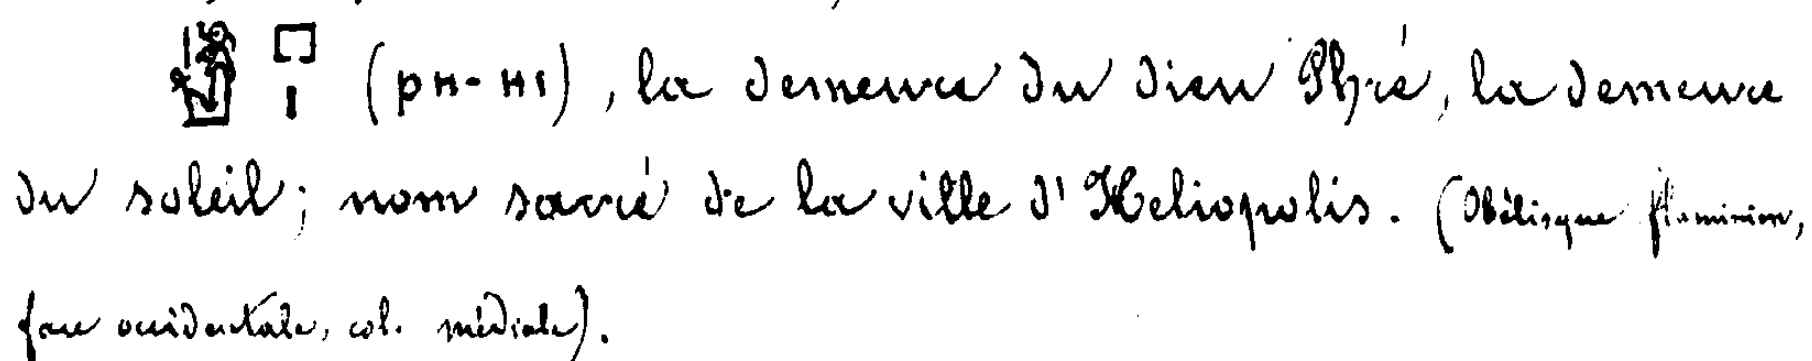 𓉐 (ⲣⲏ-ⲏⲓ), la demeure du dieu Phré, la demeure
du soleil; nom sacré de la ville d'Heliopolis. (Obélisque flaminien,
face occidentale, col. médiale).